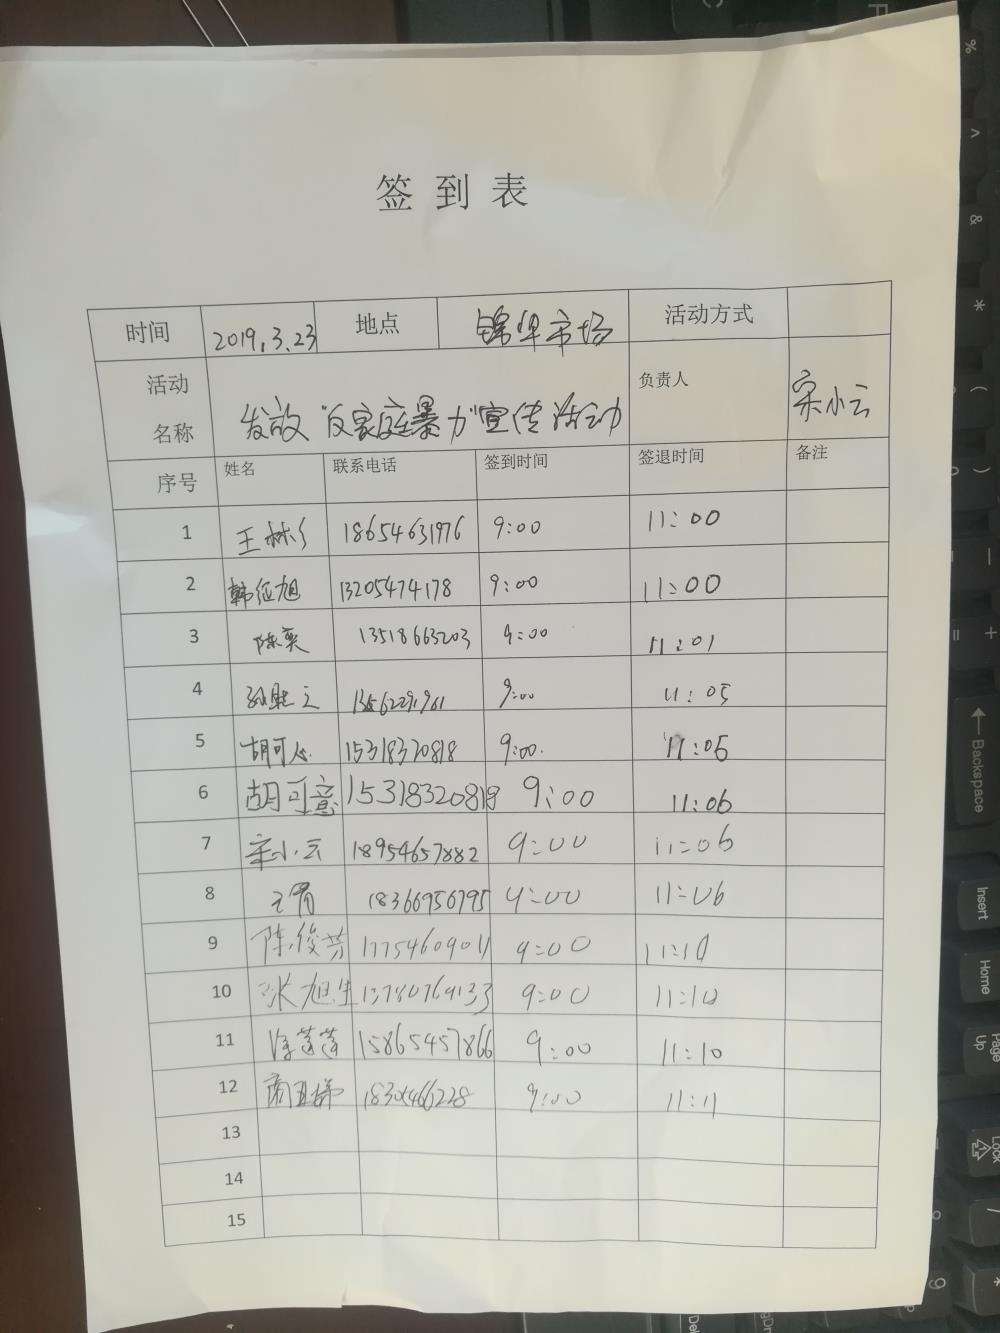 签到表
时间 2019.3.23 地点 锦华市场 活动方式
活动名称 发放"反家庭暴力"宣传活动 负责人 宋小云
序号 姓名 联系电话 签到时间 签退时间 备注
1 王林 18654631976 9:00 11:00
2 韩征旭 13205474178 9:00 11:00
3 陈奕 13518663203 9:00 11:01
4 9:00 11:05
5 胡可心 15318320818 9:00 11:05
6 胡可意 15318320818 9:00 11:06
7 宋小云 18954657882 9:00 11:06
8 18366956795 9:00 11:06
9 陈俊芳 17754609011 9:00 11:10
10 张旭生 9:00 11:10
11 徐莲莲 15865457866 9:00 11:10
12 9:00 11:11
13
14
15
% ^ & * ( ) — + =
Backspace
Insert
Home
Page Up
Lock
9